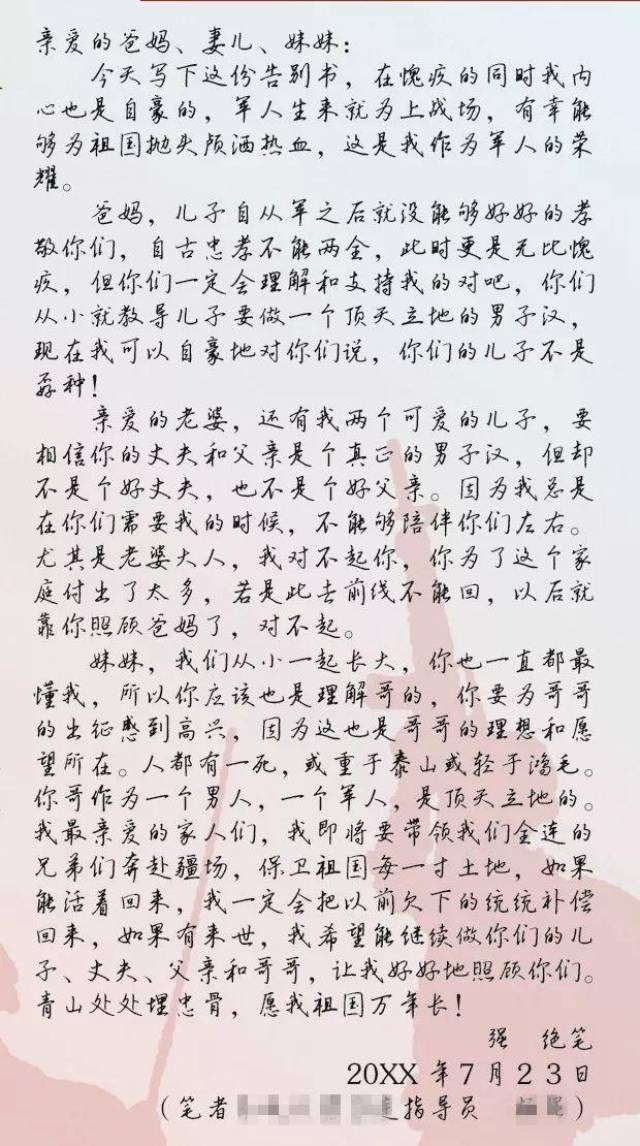 亲爱的爸妈、妻儿、妹妹：
今天写下这份告别书，在愧疚的同时我内
心也是自豪的，军人生来就为上战场，有幸能
够为祖国抛头颅洒热血，这是我作为军人的荣
耀。
爸妈，儿子自从军之后就没能够好好的孝
敬你们，自古忠孝不能两全，此时更是无比愧
疚，但你们一定会理解和支持我的对吧，你们
从小就教导儿子要做一个顶天立地的男子汉，
现在我可以自豪地对你们说，你们的儿子不是
孬种！
亲爱的老婆，还有我两个可爱的儿子，要
相信你的丈夫和父亲是个真正的男子汉，但却
不是个好丈夫，也不是个好父亲。因为我总是
在你们需要我的时候，不能够陪伴你们左右。
尤其是老婆大人，我对不起你，你为了这个家
庭付出了太多，若是此去前线不能回，以后就
靠你照顾爸妈了，对不起。
妹妹，我们从小一起长大，你也一直都最
懂我，所以你应该也是理解哥的，你要为哥哥
的出征感到高兴，因为这也是哥哥的理想和愿
望所在。人都有一死，或重于泰山或轻于鸿毛。
你哥作为一个男人，一个军人，是顶天立地的。
我最亲爱的家人们，我即将要带领我们全连的
兄弟们奔赴疆场，保卫祖国每一寸土地，如果
能活着回来，我一定会把以前欠下的统统补偿
回来，如果有来世，我希望能继续做你们的儿
子、丈夫、父亲和哥哥，让我好好地照顾你们。
青山处处埋忠骨，愿我祖国万年长！
强 绝笔
20XX 年 7 月 2 3 日
（笔者 连指导员